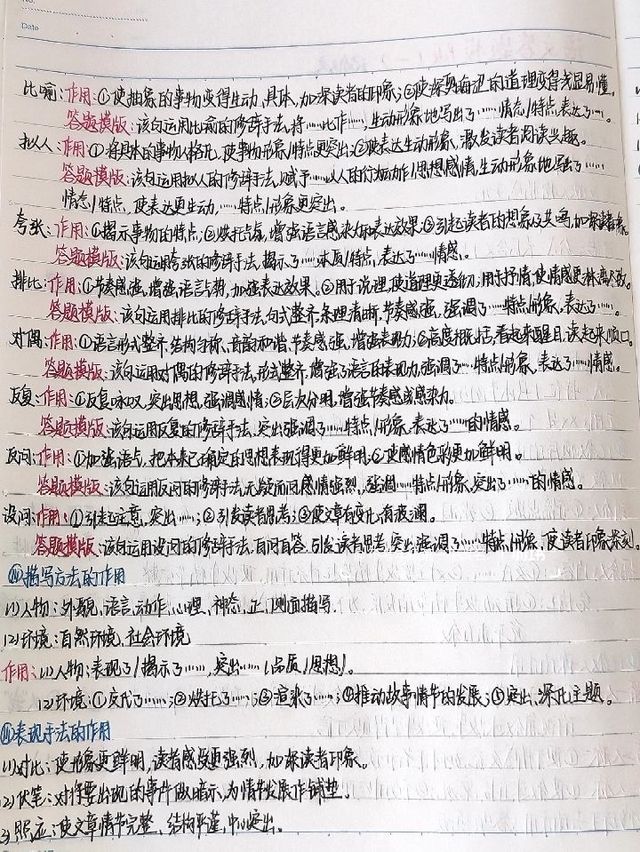 No.
Date
比喻:作用:①使抽象的事物变得生动、具体,加深读者的印象;②使深奥的道理变得浅显易懂。
答题模版:该句运用比喻的修辞手法,将……比作……,生动形象地写出了……情态/特点,表达了……。
拟人:作用:①将具体的事物人格化,使事物形象/特点更突出;②使表达生动形象,激发读者阅读兴趣。
答题模版:该句运用拟人的修辞手法,赋予……以人的行为动作/思想感情,生动形象地写出了……
情态/特点,使表达更生动,……特点/形象更突出。
夸张:作用:①揭示事物的特点;②烘托气氛,增强语言感染力和表达效果;③引起读者的想象及共鸣,加深读者印象。
答题模版:该句运用夸张的修辞手法,揭示了……本质/特点,表达了……情感。
排比:作用:①节奏感强,增强语言气势,加强表达效果。②用于说理,使道理更透彻;用于抒情,使情感更淋漓尽致。
答题模版:该句运用排比的修辞手法,句式整齐,条理清晰,节奏感强,强调了……特点/形象,表达了……。
对偶:作用:①语言形式整齐,结构匀称,音韵和谐,节奏感强,增强表现力;②高度概括,看起来醒目,读起来顺口。
答题模版:该句运用对偶的修辞手法,形式整齐,增强了语言的表现力,强调了……特点/形象,表达了……情感。
反复:作用:①反复咏叹,突出思想,强调感情;②层次分明,增强节奏感或感染力。
答题模版:该句运用反复的修辞手法,突出强调了……特点/形象,表达了……的情感。
反问:作用:①加强语气,把本来已确定的思想表现得更加鲜明;②使感情色彩更加鲜明。
答题模版:该句运用反问的修辞手法,无疑而问,感情强烈,强调……特点/形象,突出了……的情感。
设问:作用:①引起注意,突出……;②引发读者思考;③使文章有变化,有波澜。
答题模版:该句运用设问的修辞手法,自问自答,引发读者思考,突出强调了……特点/形象,使读者印象深刻。
描写方法的作用
(1)人物:外貌、语言、动作、心理、神态、正、侧面描写
(2)环境:自然环境,社会环境
作用:(1)人物:表现了/揭示了……,突出……(品质/思想)。
(2)环境:①交代了……;②烘托了……;③渲染了……;④推动故事情节的发展;⑤突出、深化主题。
表现手法的作用
(1)对比:使形象更鲜明,读者感受更强烈,加深读者印象。
(2)伏笔:对将要出现的事件做暗示,为情节发展作铺垫。
3)照应:使文章情节完整、结构严谨、中心突出。